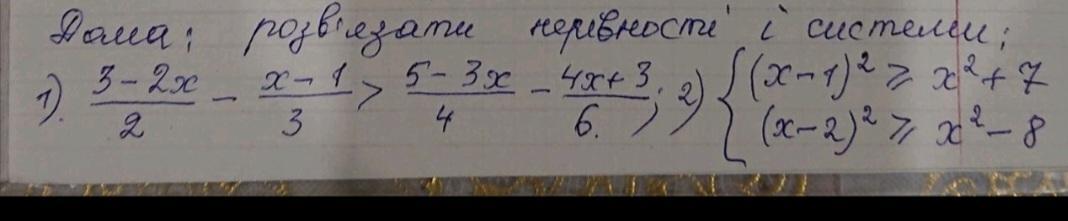 Дома: розв'язати нерівності і системи:
1). (3-2x)/2 - (x-1)/3 > (5-3x)/4 - (4x+3)/6.; 2) { (x-1)² ≥ x²+7
(x-2)² ≥ x²-8